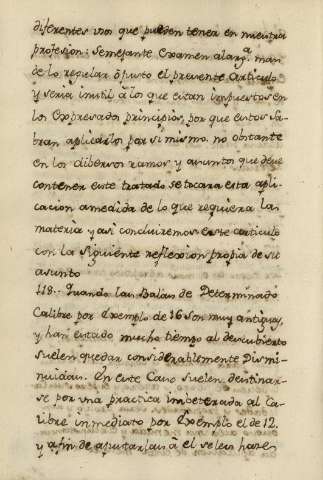 diferentes usos que pueden tener en nuestra
profesion: Semejante Examen alarg.ª mas
de lo regular ó justo el presente Articulo
y seria inutil á los que estan impuestos en
los Expresados principios, por que estos sa-
bran aplicarlos por si mismo. no obstante
en los diversos ramos, y asuntos que deve
contener este tratado, se tocara esta apli-
cacion amedida de lo que requiera la
materia y asi concluiremos este articulo
con la siguiente reflexion propia de su
asunto
118.. Quando las Balas de Determinado
Calibre por Exemplo de 16 son muy antiguas,
y han estado mucho tiempo al descubierto
suelen quedar considerablemente Dismi-
nuidas. En este Caso suelen destinar-
se por una practica imbeterada al Ca-
libre inmediato por Exemplo el de 12.
y afin de ajustarlas á el se les hace